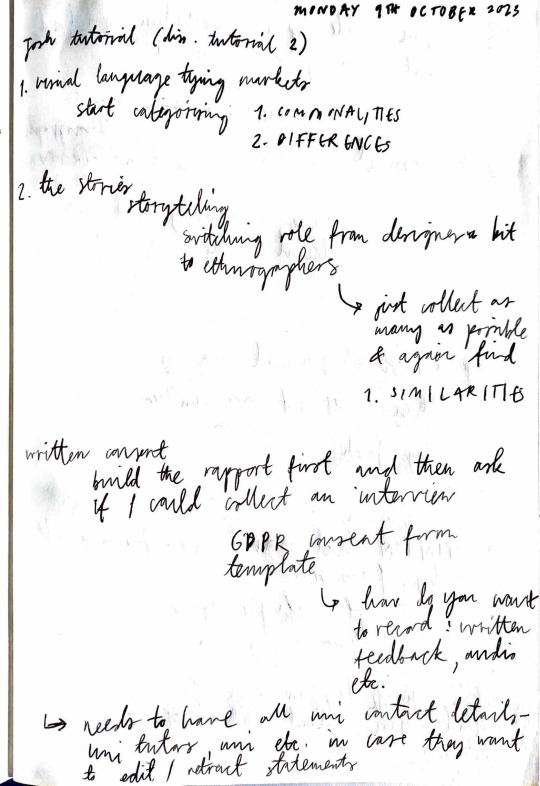 MONDAY 9TH OCTOBER 2023
Josh tutorial (diss. tutorial 2)
1. visual language tying markets
start categorising 1. COMMONALITIES
2. DIFFERENCES
2. the stories
storytelling
switching role from designer a bit
to ethnographers
↳ just collect as
many as possible
& again find
1. SIMILARITIES
written consent
build the rapport first and then ask
if I could collect an interview
GDPR consent form
template
↳ how do you want
to record : written
feedback, audio
etc.
↳ needs to have all uni contact details-
uni tutor, uni etc. in case they want
to edit / retract statements